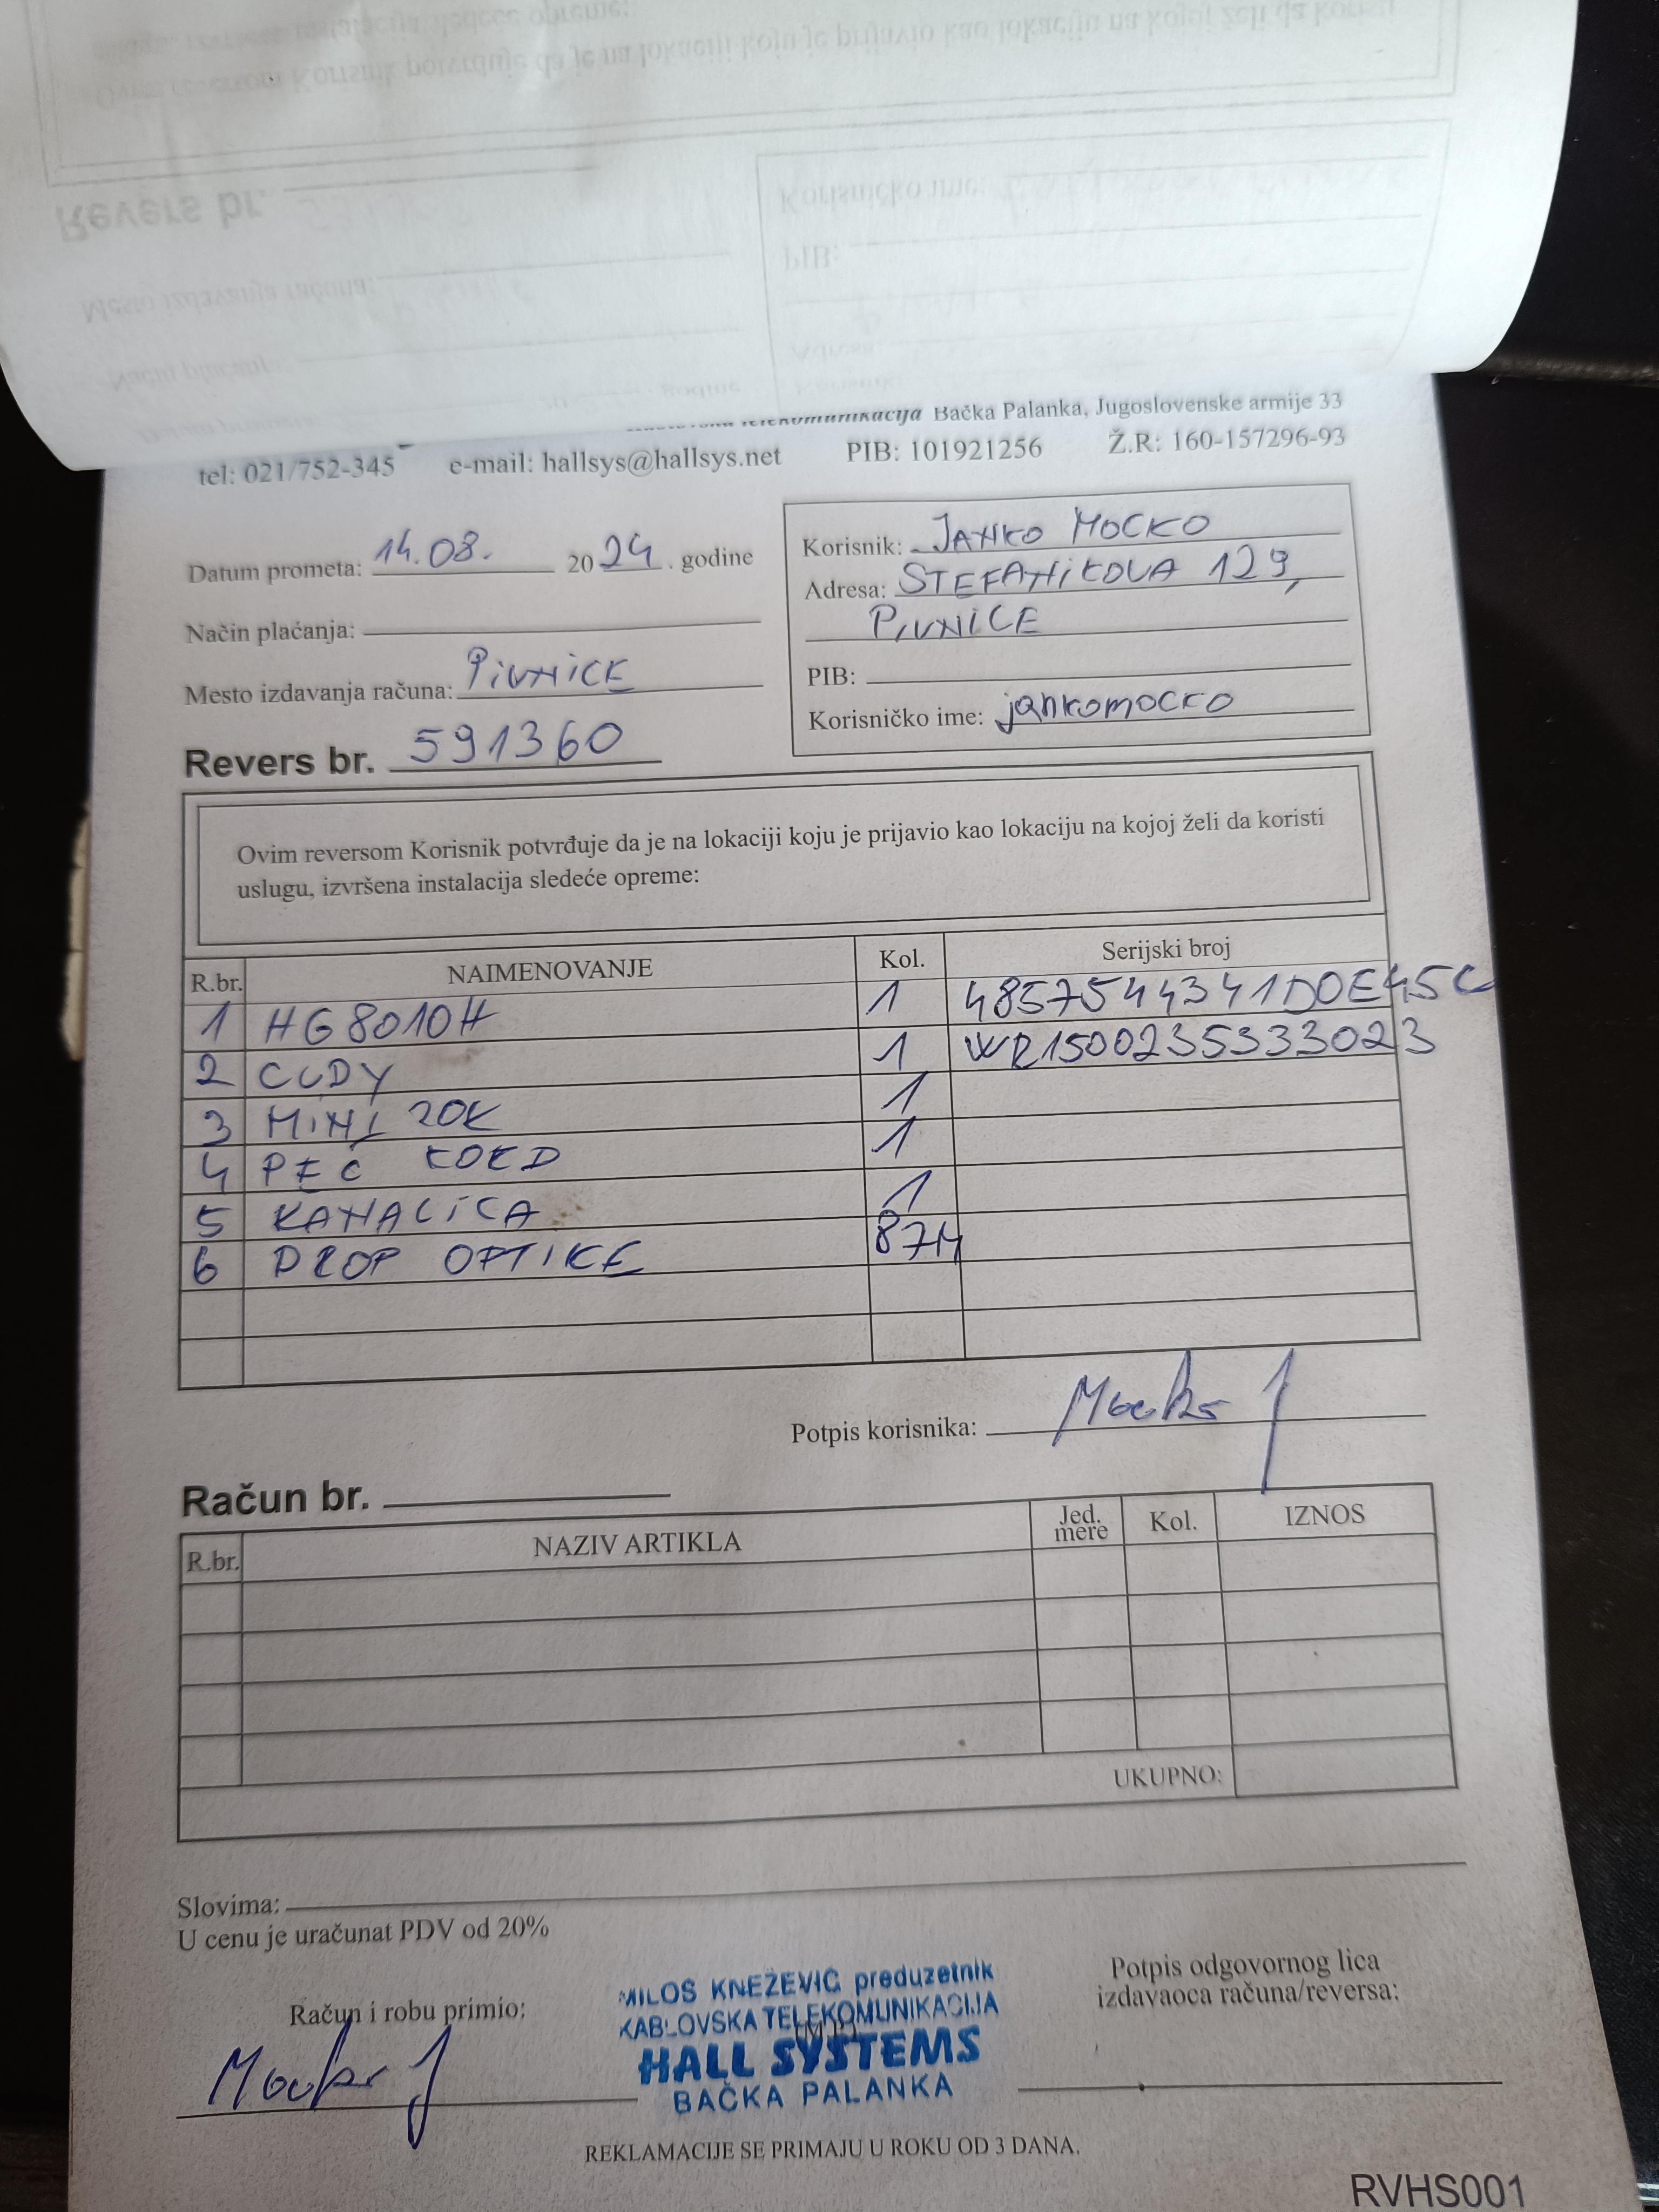 telekomunikacija Bačka Palanka, Jugoslovenske armije 33
tel: 021/752-345 e-mail: hallsys@hallsys.net PIB: 101921256 Ž.R: 160-157296-93
Datum prometa: 14.08. 2024. godine
Način plaćanja:
Mesto izdavanja računa: PIVNICE
Revers br. 591360
Korisnik: JANKO MOCKO
Adresa: STEFANIKOVA 129,
PIVNICE
PIB:
Korisničko ime: jankomocko
Ovim reversom Korisnik potvrđuje da je na lokaciji koju je prijavio kao lokaciju na kojoj želi da koristi
uslugu, izvršena instalacija sledeće opreme:
R.br. NAIMENOVANJE Kol. Serijski broj
1 HG8010H 1 4857544341D0E45C
2 CUDY 1 WR1500235333023
3 MINI ZOK 1
4 PEČ 1
5 KANALICA 1
6 DROP OPTIKE 87M
Potpis korisnika: Mocko J
Račun br.
R.br. NAZIV ARTIKLA Jed. mere Kol. IZNOS
UKUPNO:
Slovima:
U cenu je uračunat PDV od 20%
Račun i robu primio:
Mocko J
MILOŠ KNEŽEVIĆ preduzetnik
KABLOVSKA TELEKOMUNIKACIJA
HALL SYSTEMS
BAČKA PALANKA
M.P.
Potpis odgovornog lica
izdavaoca računa/reversa:
REKLAMACIJE SE PRIMAJU U ROKU OD 3 DANA.
RVHS001